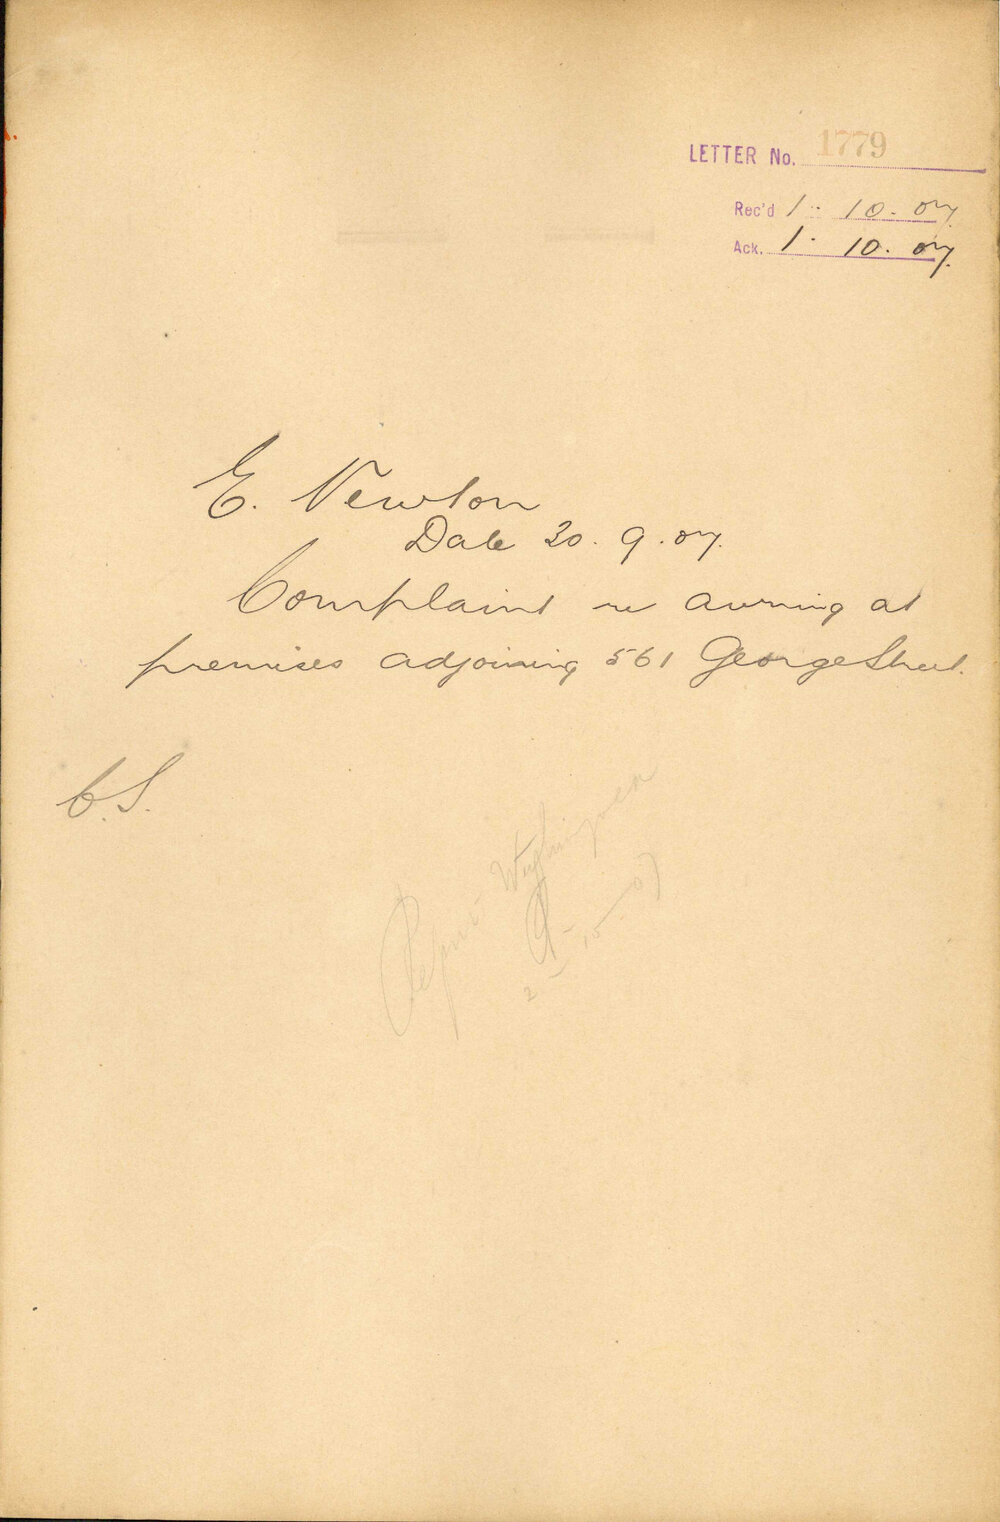 LETTER No. 1779
Rec'd 1 . 10 . 07
Ack. 1 . 10 . 07.
E. Newton
Date 30 . 9 . 07.
Complaint re awning at
premises adjoining 561 George Street.
C.S.
Report
2 - 10 - 07